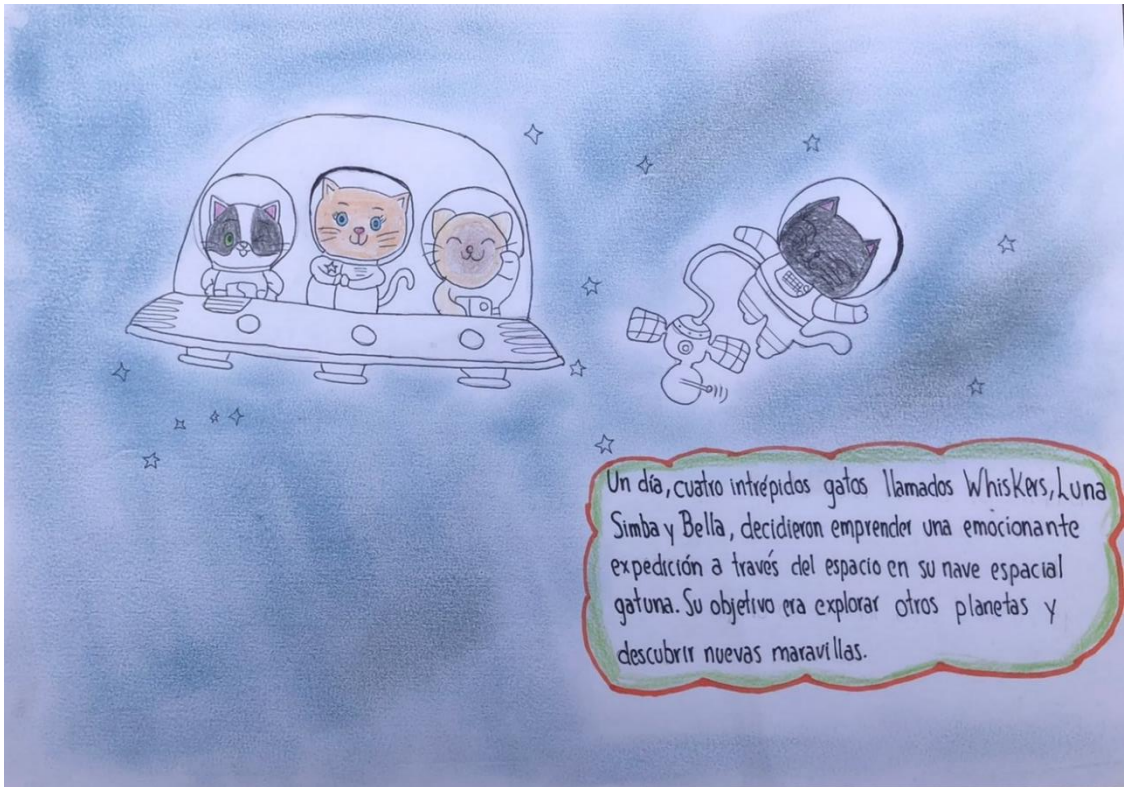 Un día, cuatro intrépidos gatos llamados Whiskers, Luna
Simba y Bella, decidieron emprender una emocionante
expedición a través del espacio en su nave espacial
gatuna. Su objetivo era explorar otros planetas y
descubrir nuevas maravillas.